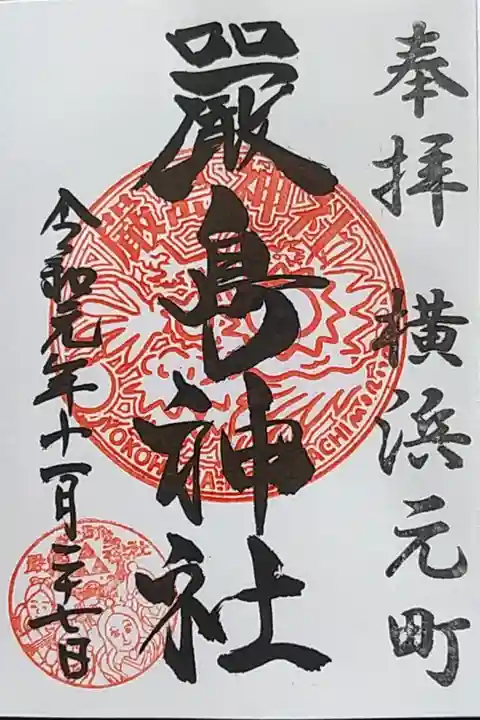 奉拝 横浜元町
嚴島神社
令和元年十一月二十七日
厳島神社
YOKOHAMA MOTOMACHI